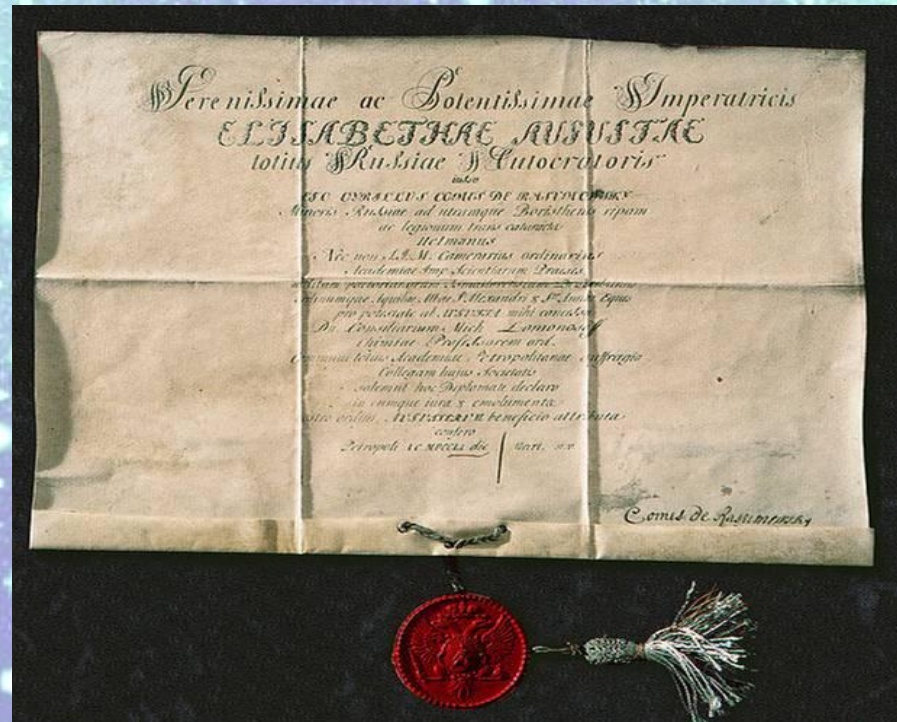 Serenissimae ac Potentissimae Imperatricis
ELISABETHAE AUGUSTAE
totius Russiae Autocratoris
iussu
EGO CYRILLUS COMES DE RASUMOWSKY
Minoris Russiae ad utramque Boristhenis ripam
ac legionum trans cataracta
Hetmanus
Nec non S.I.M. Camerarius ordinarius
Academiae Imp. Scientiarum Praeses
Ordinumque Aquilae Albae S. Alexandri & Stae Annae Eques
pro potestate ab AUGUSTA mihi concessa
Dn. Consiliarium Mich. Lomonosoff
chimiae Professorem ord.
communi totius Academiae Petropolitanae suffragio
Collegam hujus Societatis
solemni hoc Diplomate declaro
in eumque iura & emolumenta
ordini AUGUSTARUM beneficio attributa
confero
Petropoli die Mart.
Comes de Rasumowsky